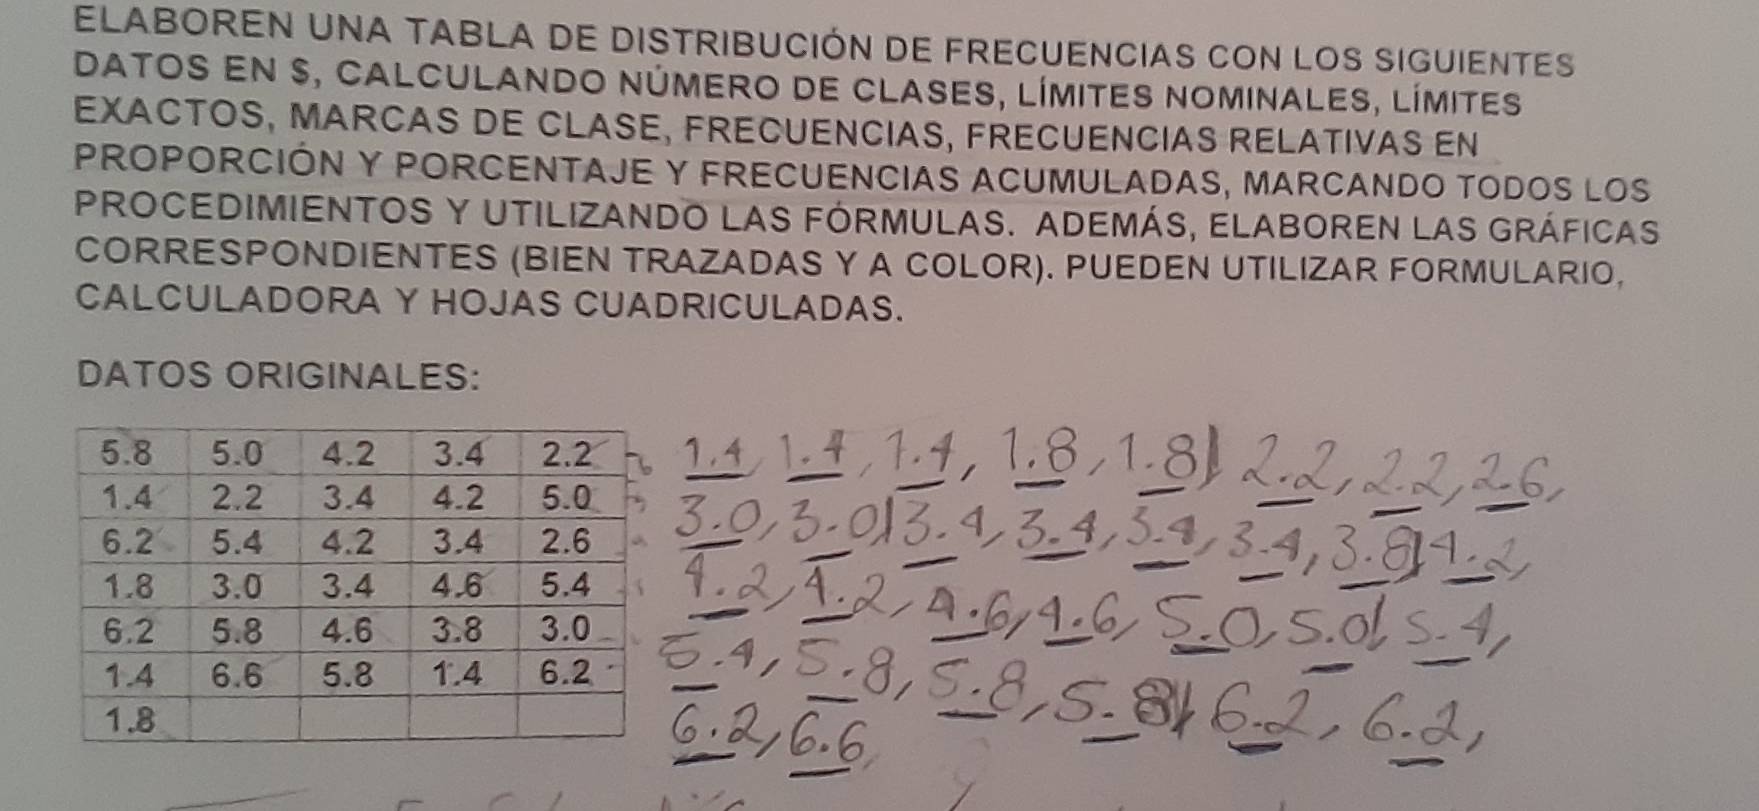 ELABOREN UNA TABLA DE DISTRIBUCIÓN DE FRECUENCIAS CON LOS SIGUIENTES
DATOS EN $, CALCULANDO NÚMERO DE CLASES, LÍMITES NOMINALES, LÍMITES
EXACTOS, MARCAS DE CLASE, FRECUENCIAS, FRECUENCIAS RELATIVAS EN
PROPORCIÓN Y PORCENTAJE Y FRECUENCIAS ACUMULADAS, MARCANDO TODOS LOS
PROCEDIMIENTOS Y UTILIZANDO LAS FÓRMULAS. ADEMÁS, ELABOREN LAS GRÁFICAS
CORRESPONDIENTES (BIEN TRAZADAS Y A COLOR). PUEDEN UTILIZAR FORMULARIO,
CALCULADORA Y HOJAS CUADRICULADAS.
DATOS ORIGINALES:
5.8 5.0 4.2 3.4 2.2
1.4 2.2 3.4 4.2 5.0
6.2 5.4 4.2 3.4 2.6
1.8 3.0 3.4 4.6 5.4
6.2 5.8 4.6 3.8 3.0
1.4 6.6 5.8 1.4 6.2
1.8
1.4, 1.4, 1.4, 1.8, 1.8) 2.2, 2.2, 2.6,
3.0, 3.0) 3.4, 3.4, 3.4, 3.4, 3.8) 4.2,
4.2, 4.2, 4.6, 4.6, 5.0, 5.0) 5.4,
5.4, 5.8, 5.8, 5.8) 6.2, 6.2,
6.2, 6.6,